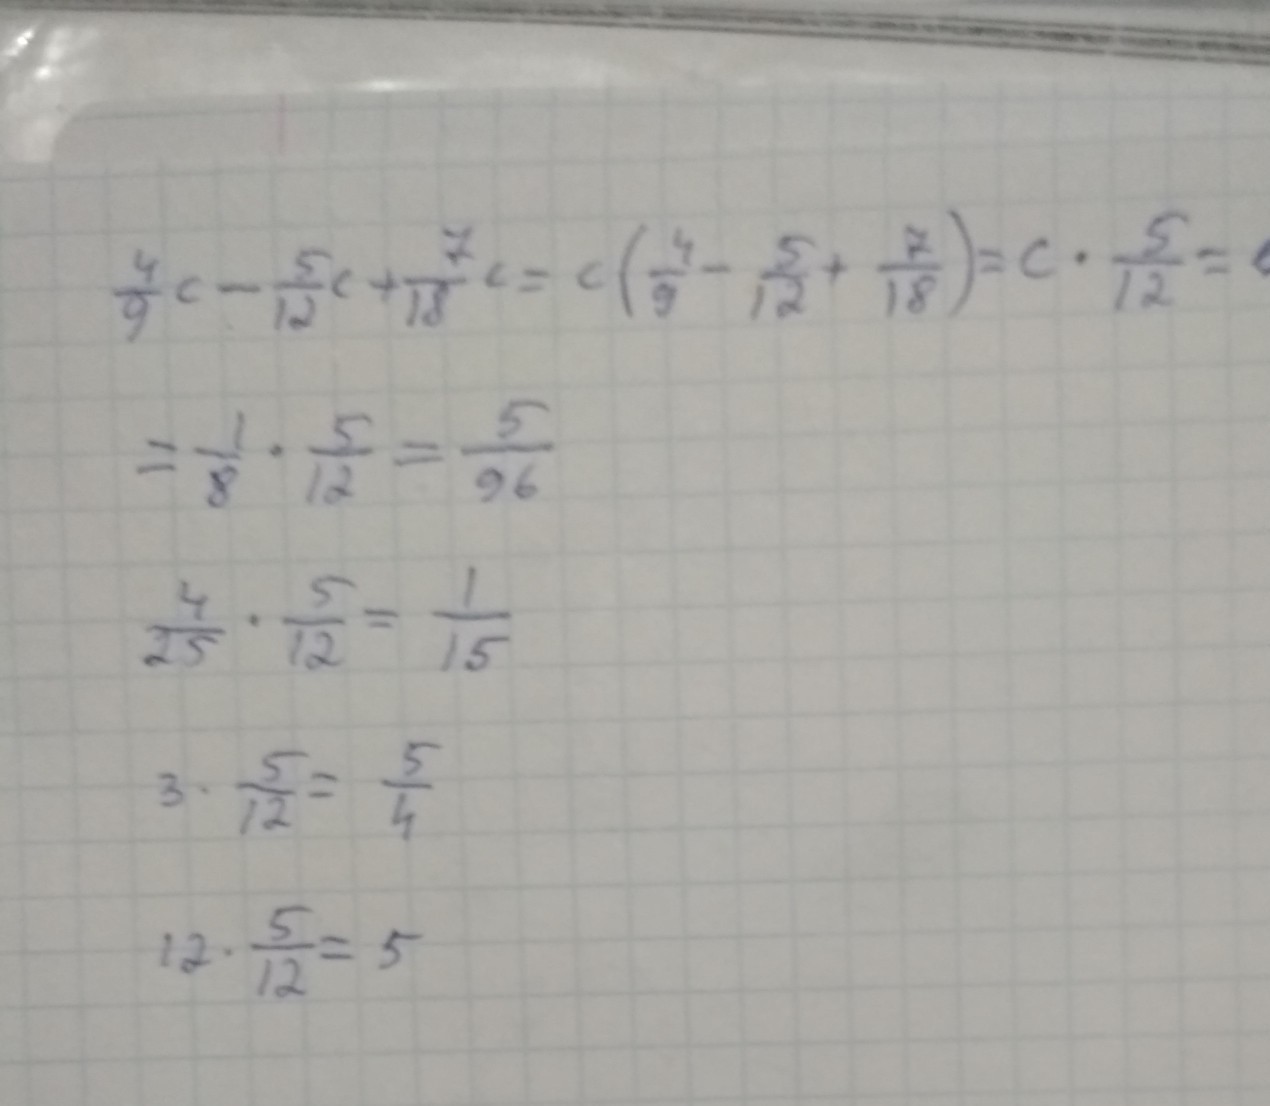 4/9 c - 5/12 c + 7/18 c = c (4/9 - 5/12 + 7/18) = c · 5/12 =
= 1/8 · 5/12 = 5/96
4/25 · 5/12 = 1/15
3 · 5/12 = 5/4
12 · 5/12 = 5